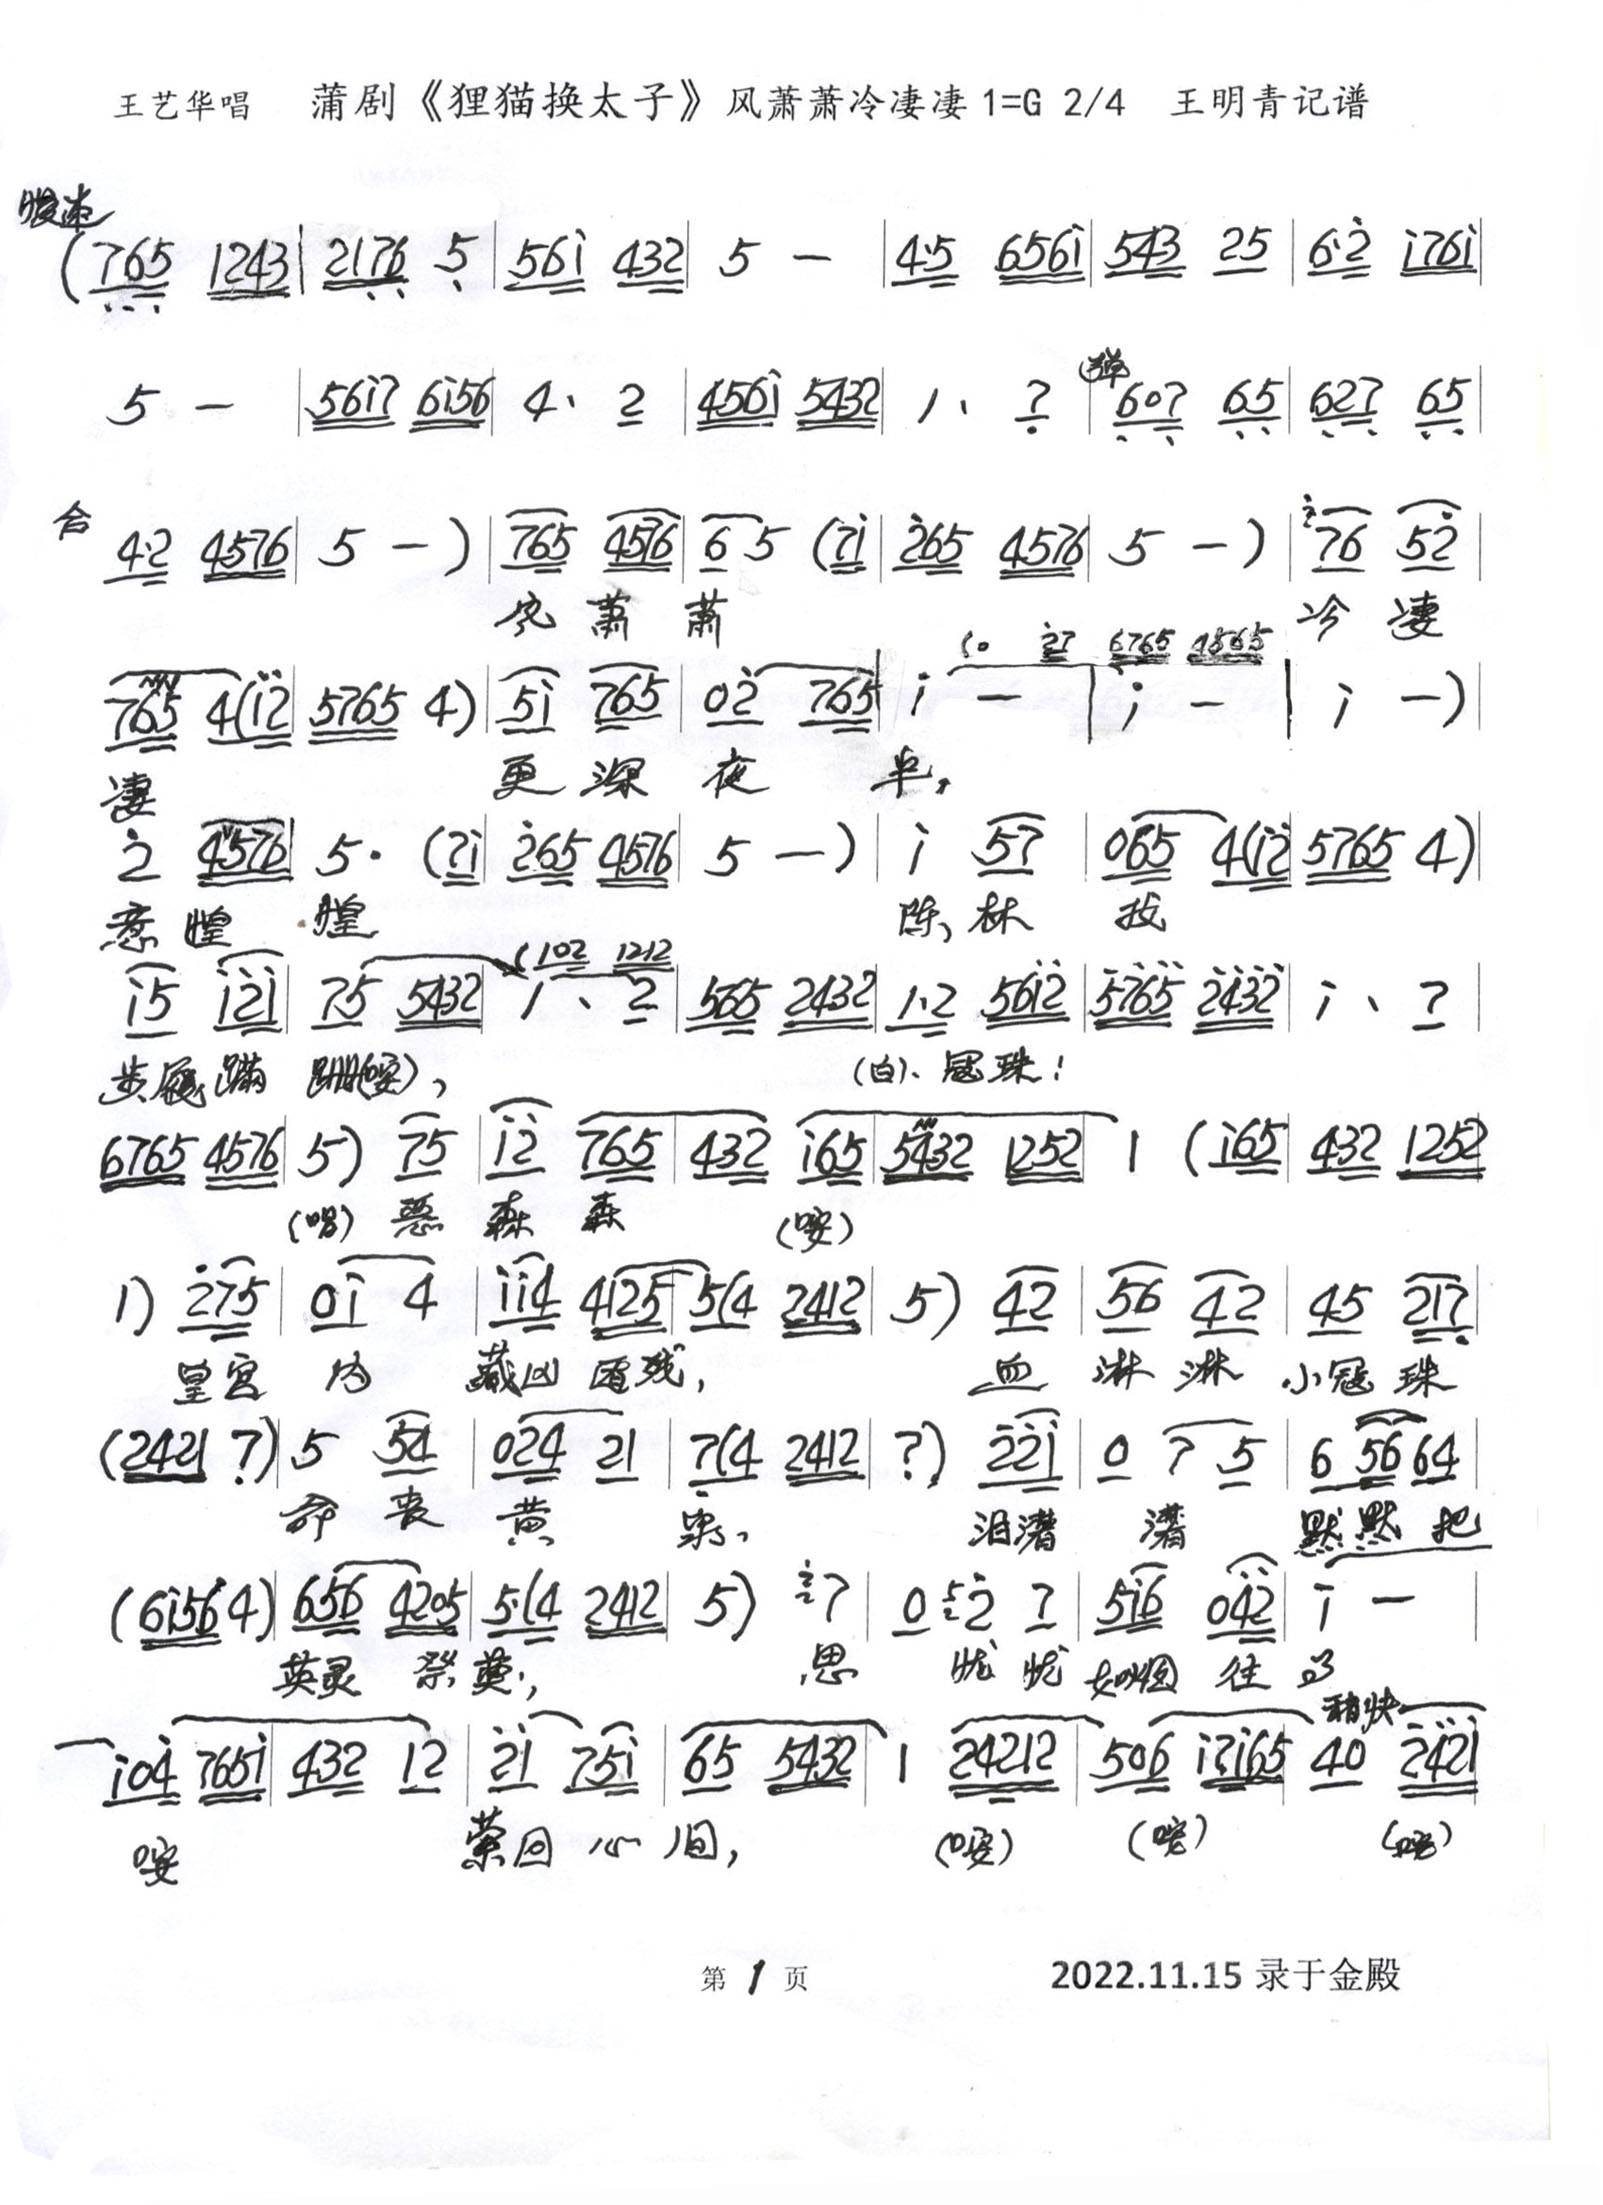 王艺华唱 蒲剧《狸猫换太子》风萧萧冷凄凄 1=G 2/4 王明青记谱
慢速
(765 1243 | 2176 5 | 561̇ 432 | 5 - | 4·5 6561̇ | 543 25 | 6·2̇ 1̇761̇ |
弹
5 - | 561̇7 61̇56 | 4· 2 | 4561̇ 5432 | 1· 7 | 607 65 | 627 65 |
合 4·2 4576 | 5 - ) | 765 4576 | 6 5 (71̇ | 2̇65 4576 | 5 - ) | 2̇76 52̇ |
风 萧 萧 冷 凄
(0 2̇7 6765 4565
765 4(1̇2̇ | 5765 4) | 51̇ 765 | 02̇ 765 | 1̇ - | 1̇ - | 1̇ - )
凄 更 深 夜 半,
2̇ 4576 | 5· (71̇ | 2̇65 4576 | 5 - ) | 1̇ 57 | 065 4(1̇2̇ | 5765 4) |
意 惶 惶 陈 林 我
(102 1212
1̇5 1̇2̇1̇ | 75 5432 | 1· 2 | 565 2432 | 1·2 561̇2̇ | 5̇7̇6̇5̇ 2̇4̇3̇2̇ | 1̇· 7 |
步履蹒 跚(安), (白)、冠珠!
6765 4576 | 5) 75 | 1̇2̇ 765 | 432 1̇65 | 5432 1252 | 1 (1̇65 | 432 1252
(唱) 恶 森 森 (安)
1) 2̇75 | 01̇ 4 | 1̇1̇4 4125 | 5(4 2412 | 5) 42 | 56 42 | 45 217 |
皇宫 内 藏凶 残, 血 淋 淋 小冠 珠
(2421 7) | 5 54 | 024 21 | 7(4 2412 | 7) 2̇2̇1̇ | 0 7 5 | 6 56 64 |
命 丧 黄 泉、 泪潸 潸 默默 把
(61̇56 4) | 656 4205 | 5·(4 2412 | 5) 2̇7 | 0 2̇ 7 | 51̇6 042 | 1̇ - |
英灵 祭奠, 思 忧 忧 如烟 往
稍快
1̇04 7651̇ | 432 12 | 2̇1̇ 751̇ | 65 5432 | 1 24212 | 506 1̇2̇1̇65 | 40 2̇4̇2̇1̇ |
安 萦回 心 间, (安) (安) (安)
第 1 页 2022.11.15 录于金殿